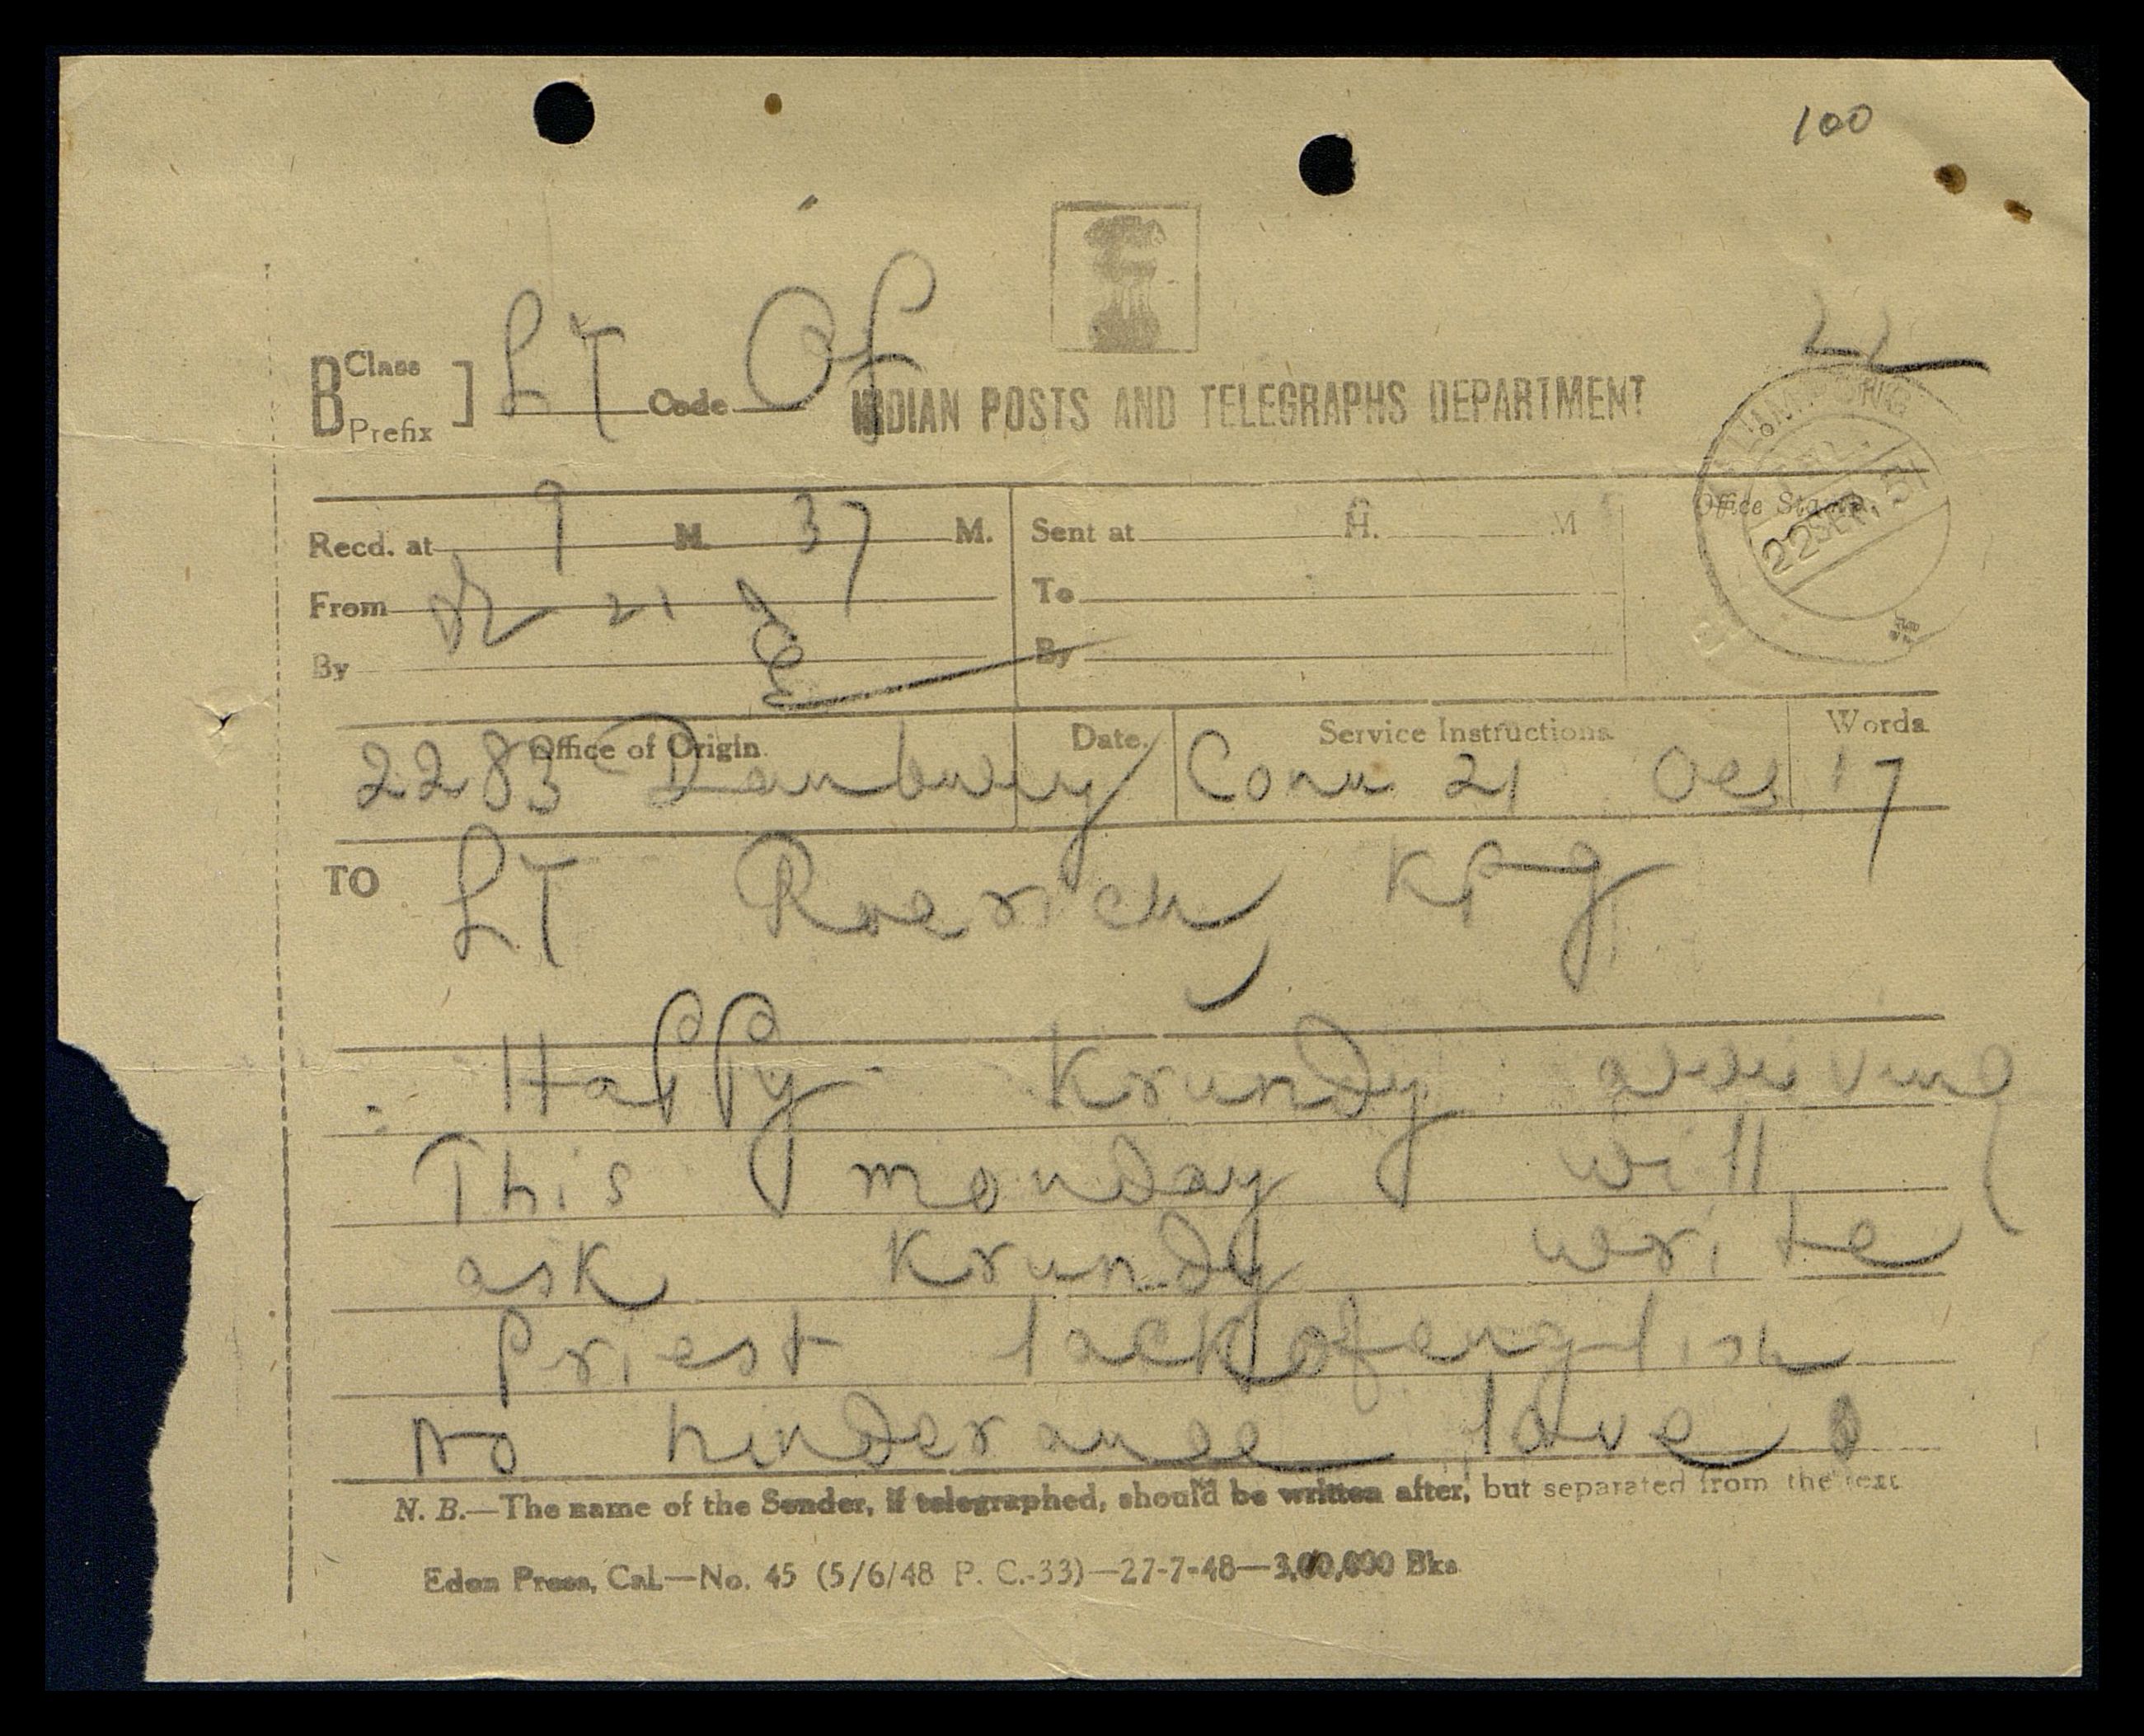 100
22
B Class Prefix ] LT Code Of INDIAN POSTS AND TELEGRAPHS DEPARTMENT
KALIMPONG
22 SEP. 51
Office Stamp.
Recd. at 9 H. 37 M. Sent at H. M
From 21 To
By By
Office of Origin Date. Service Instructions Words
2283 Danbury Conn 21 17
TO LT Roerich Kpg
Happy Krundy arriving
This monday will
ask Krundy write
Priest lackofenglish
No hinderance love
N. B.—The name of the Sender, if telegraphed, should be written after, but separated from the text
Eden Press, Cal.—No. 45 (5/6/48 P. C.-33)—27-7-48—3,00,000 Bks